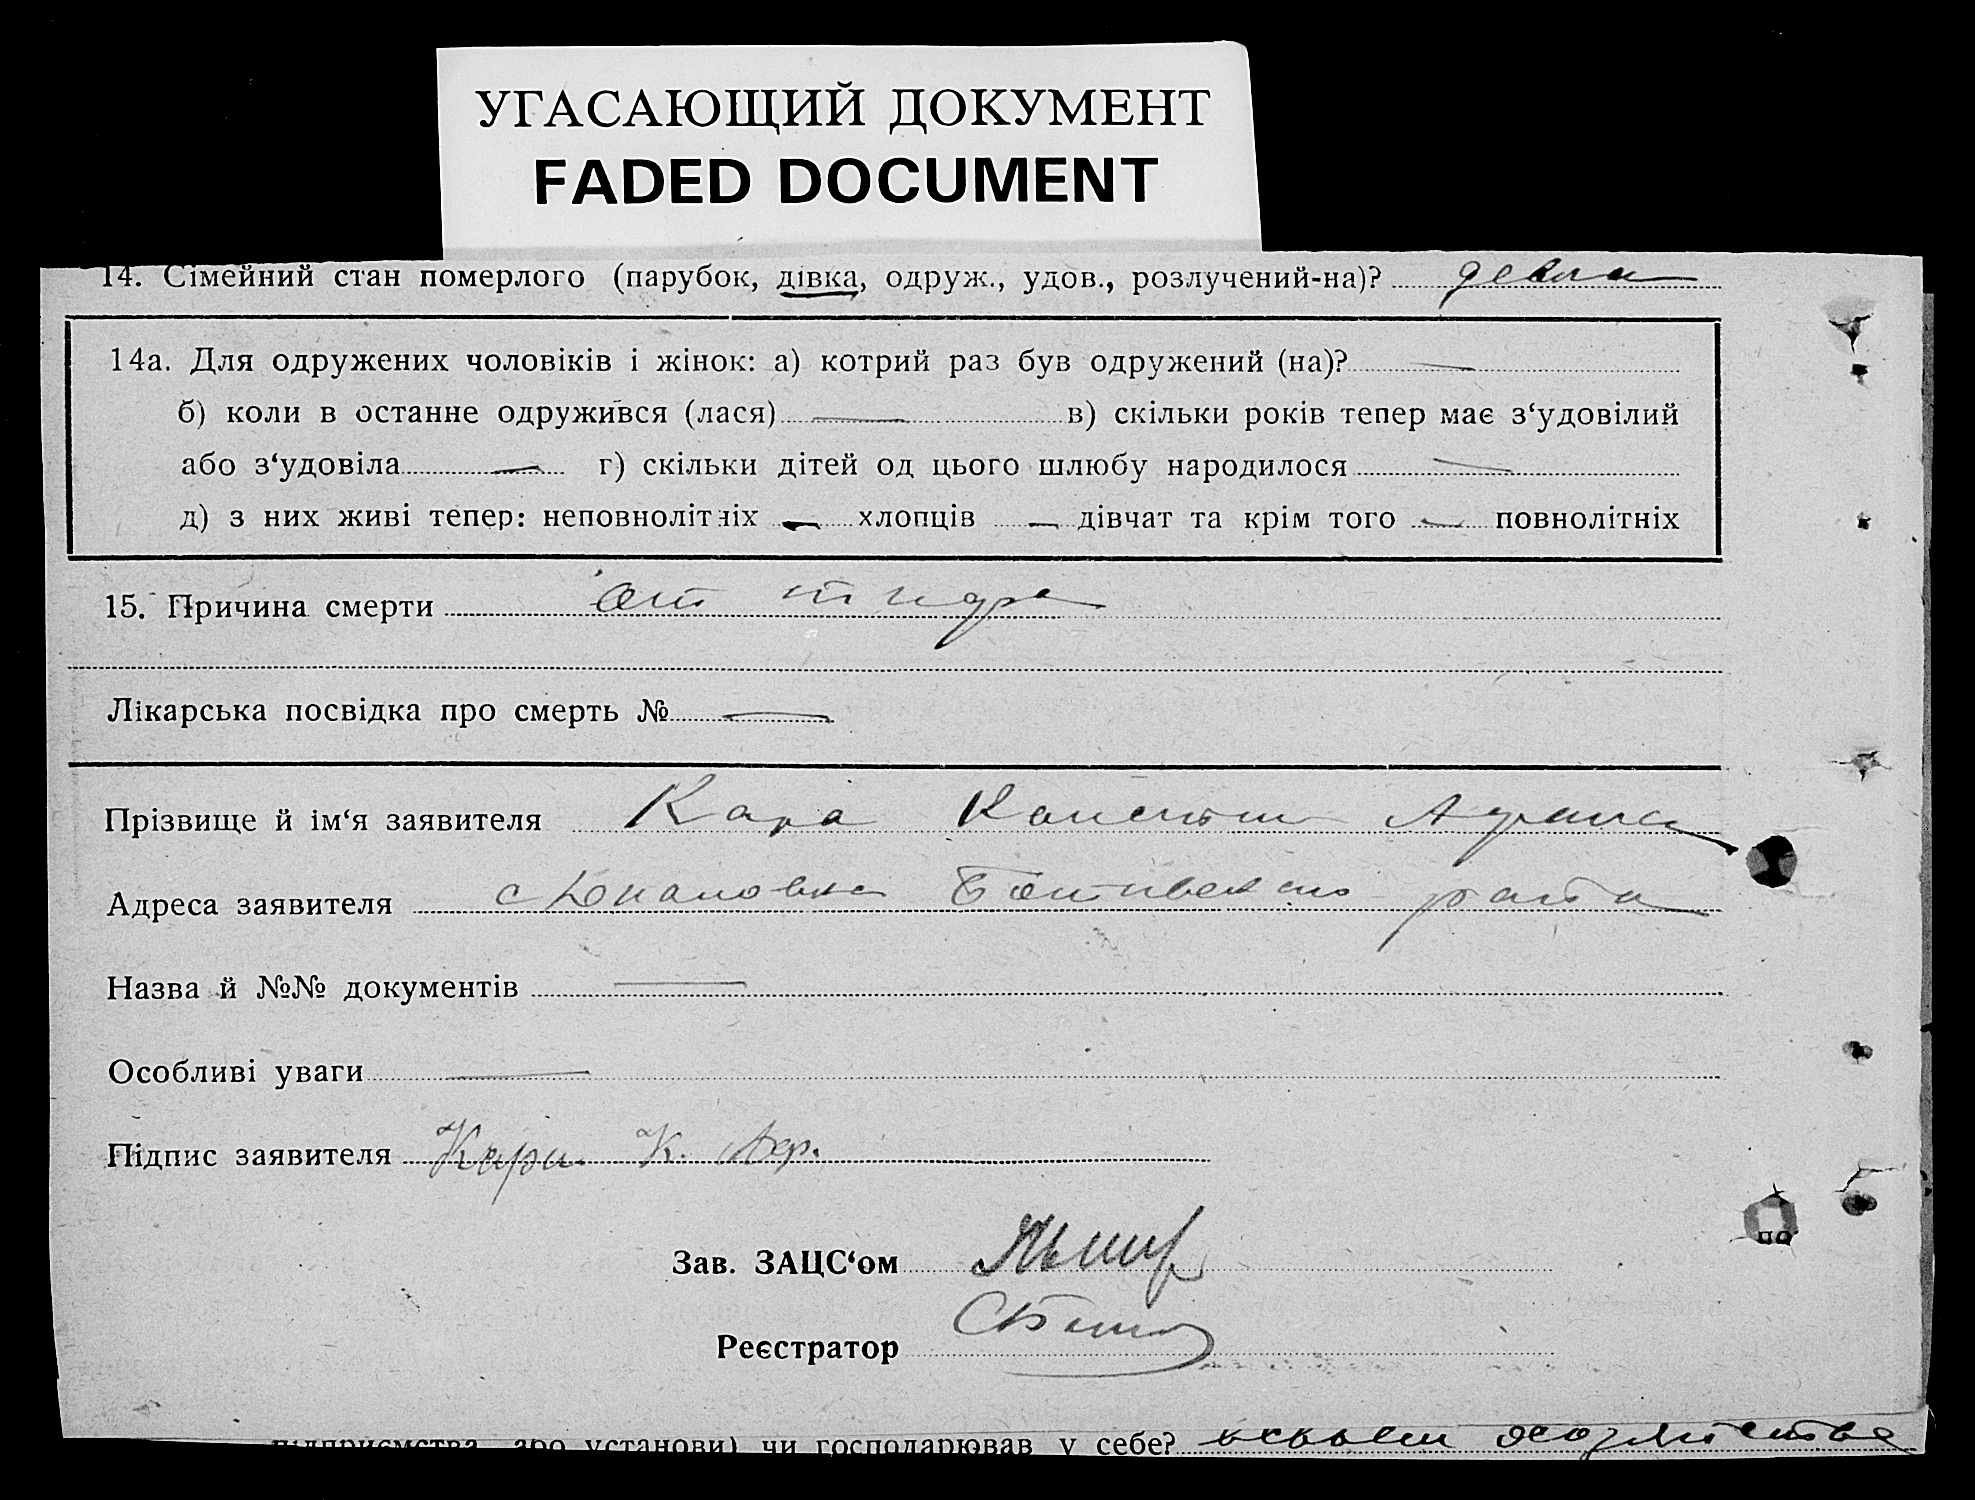 УГАСАЮЩИЙ ДОКУМЕНТ
FADED DOCUMENT
14. Сімейний стан померлого (парубок, дівка, одруж., удов., розлучений-на)?
14а. Для одружених чоловіків і жінок: а) котрий раз був одружений (на)? —
б) коли в останне одружився (лася) — в) скільки років тепер має з‘удовілий
або з‘удовіла — г) скільки дітей од цього шлюбу народилося —
д) з них живі тепер: неповнолітніх — хлопців — дівчат та крім того — повнолітніх
15. Причина смерти от
Лікарська посвідка про смерть № —
Прізвище й ім‘я заявителя Кара
Адреса заявителя с
Назва й №№ документів —
Особливі уваги —
Підпис заявителя Кара К.
Зав. ЗАЦС‘ом
Реєстратор
по
підприємства або установи) чи господарював у себе?